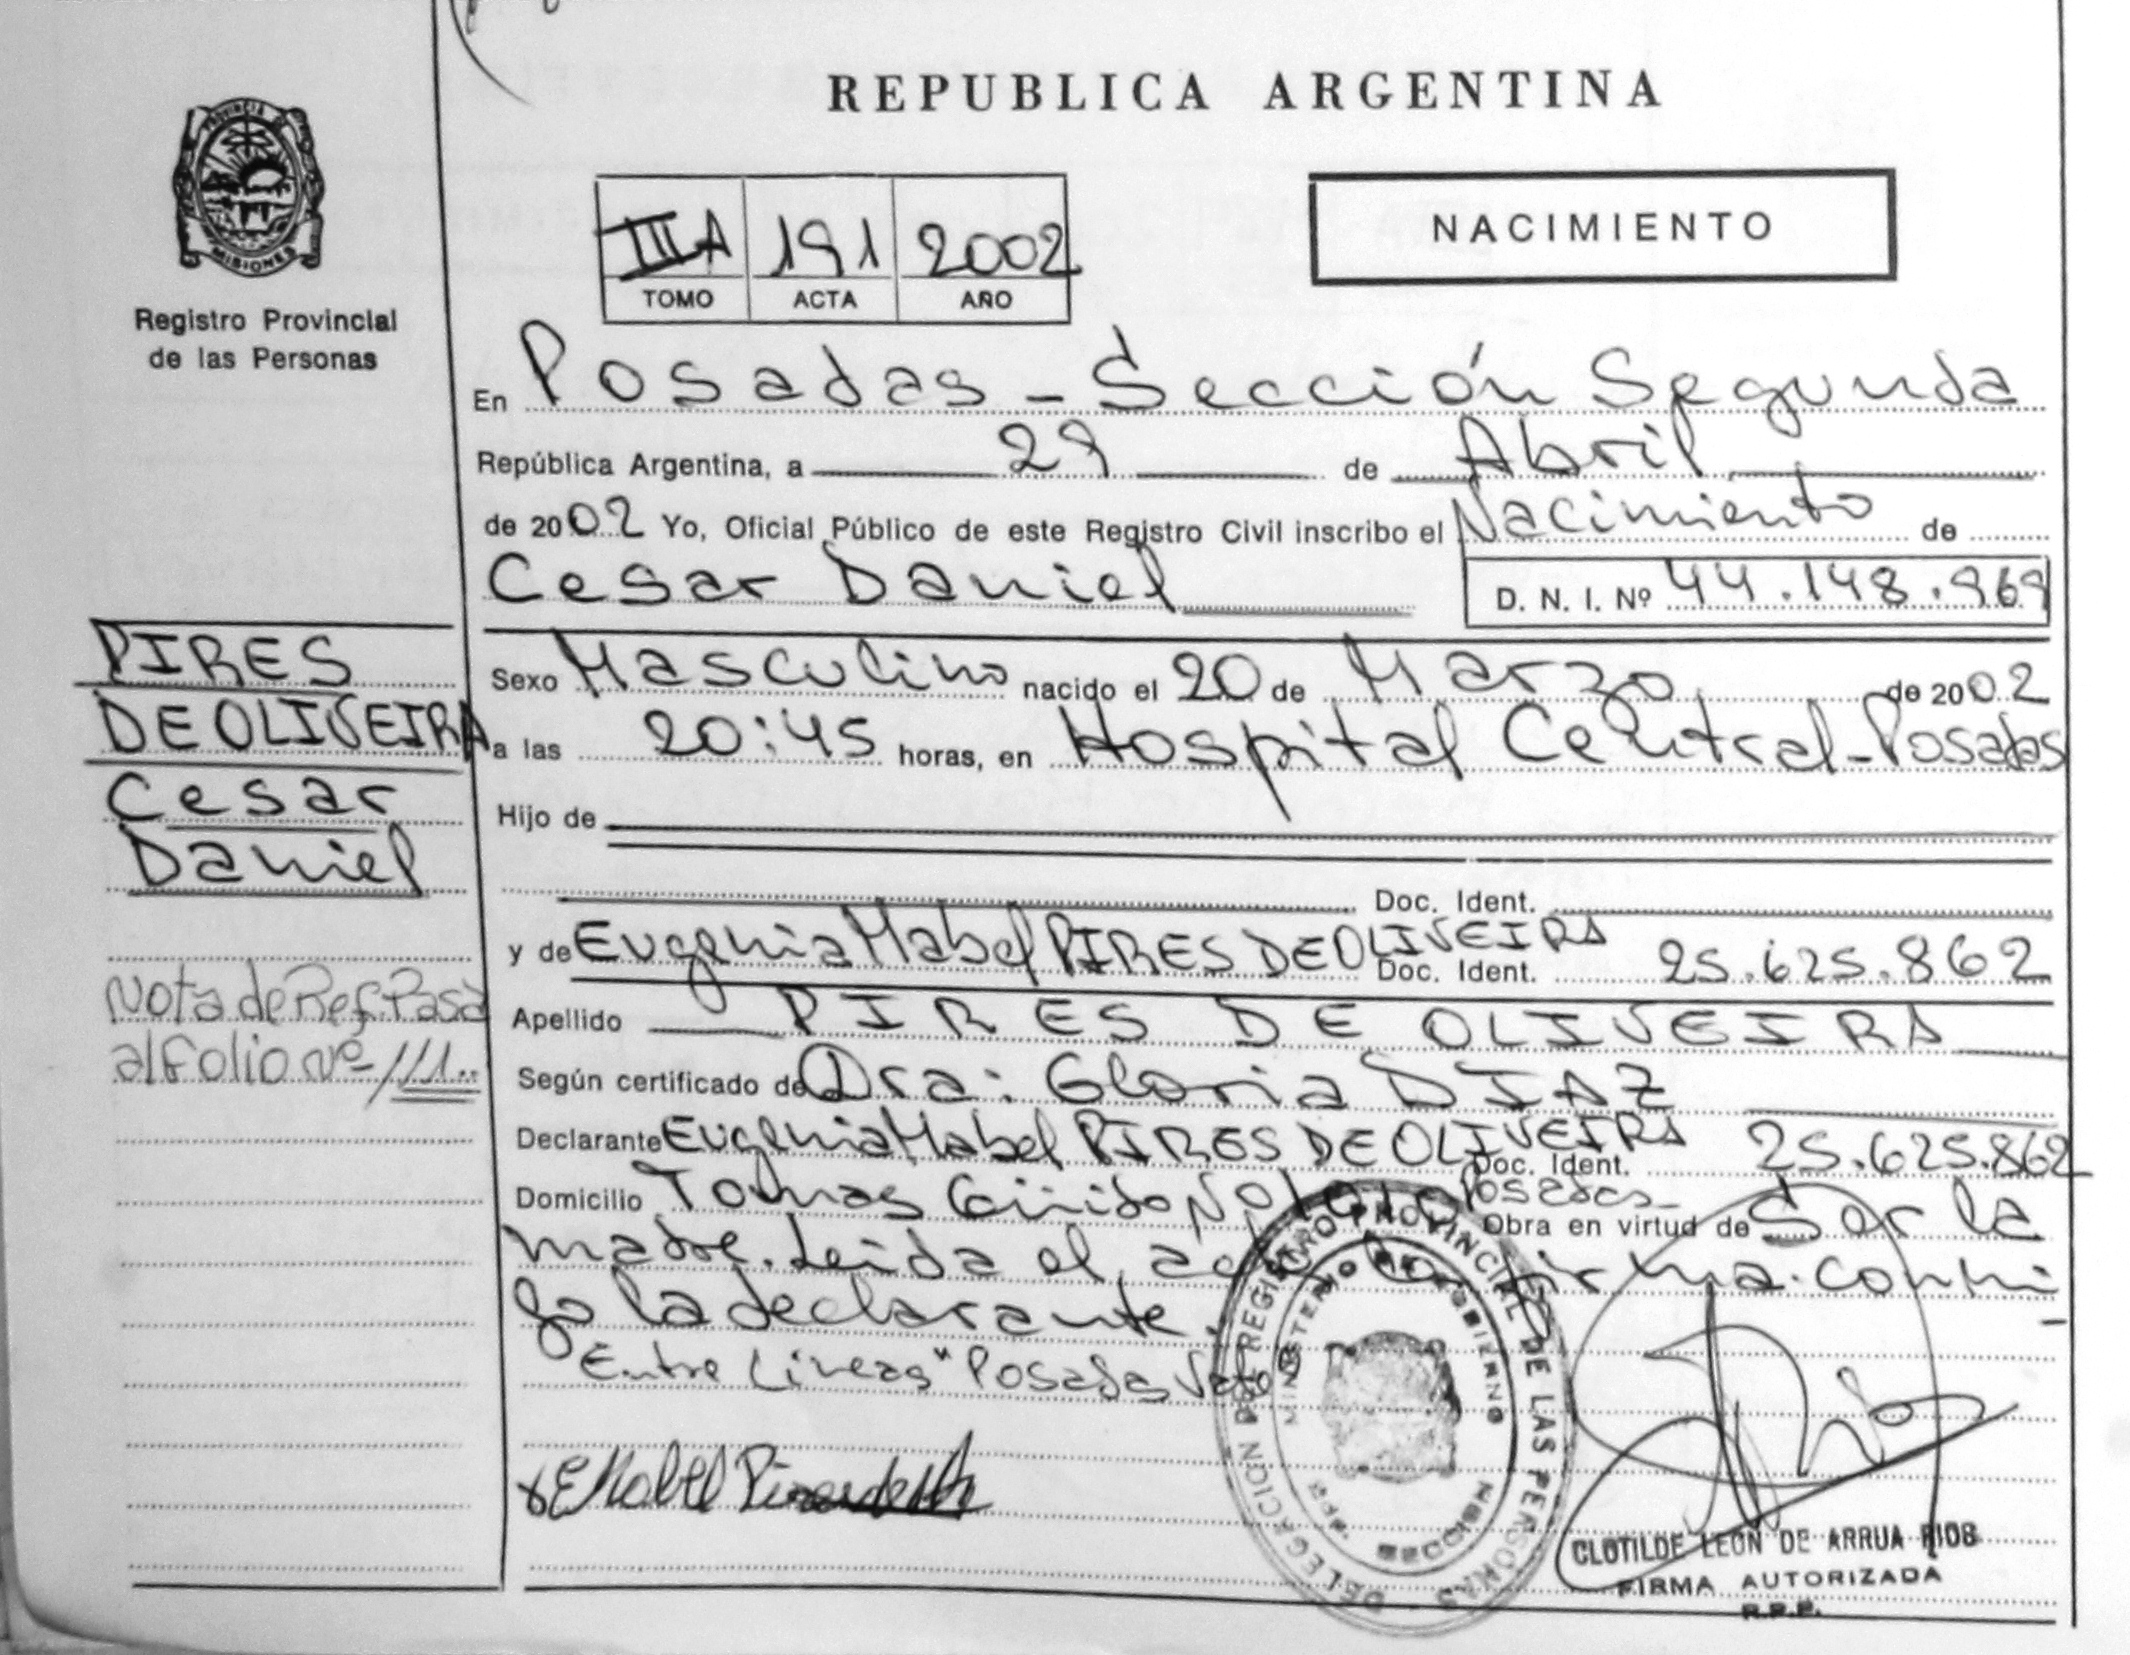 REPUBLICA ARGENTINA
PROVINCIA DE
MISIONES
Registro Provincial
de las Personas
III A 191 2002
TOMO ACTA AÑO
NACIMIENTO
En Posadas - Sección Segunda
República Argentina, a 29 de Abril
de 2002 Yo, Oficial Público de este Registro Civil inscribo el Nacimiento de
Cesar Daniel
D. N. I. Nº 44.148.969
PIRES
DE OLIVEIRA
Cesar
Daniel
Nota de Ref. Pasa
al Folio Nº
Sexo Masculino nacido el 20 de Marzo de 2002
a las 20:45 horas, en Hospital Central - Posadas
Hijo de
Doc. Ident.
y de Eugenia Mabel PIRES DE OLIVEIRA Doc. Ident. 25.625.862
Apellido PIRES DE OLIVEIRA
Según certificado de Dra: Gloria DIAZ
Declarante Eugenia Mabel PIRES DE OLIVEIRA Doc. Ident. 25.625.862
Domicilio Tomas Güido Nº Posadas Obra en virtud de Ser la
madre. Leida el acta la firma conmi-
go la declarante.
Entre Lineas "Posadas Vale
DELEGACION DE REGISTRO PROVINCIAL DE LAS PERSONAS
MINISTERIO DE GOBIERNO
CLOTILDE LEON DE ARRUA RIOS
FIRMA AUTORIZADA
R.P.P.